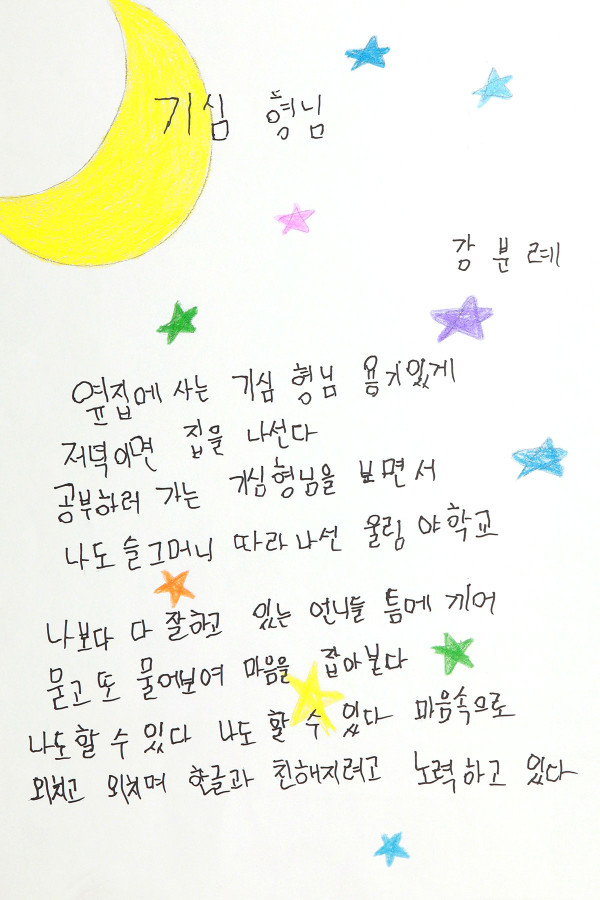 기심 형님
강분례
옆집에 사는 기심 형님 용기있게
저녁이면 집을 나선다
공부하러 가는 기심형님을 보면서
나도 슬그머니 따라나선 울림 야학교
나보다 다 잘하고 있는 언니들 틈에 끼어
묻고 또 물어보여 마음을 잡아본다
나도 할 수 있다 나도 할 수 있다 마음속으로
외치고 외치며 한글과 친해지려고 노력하고 있다